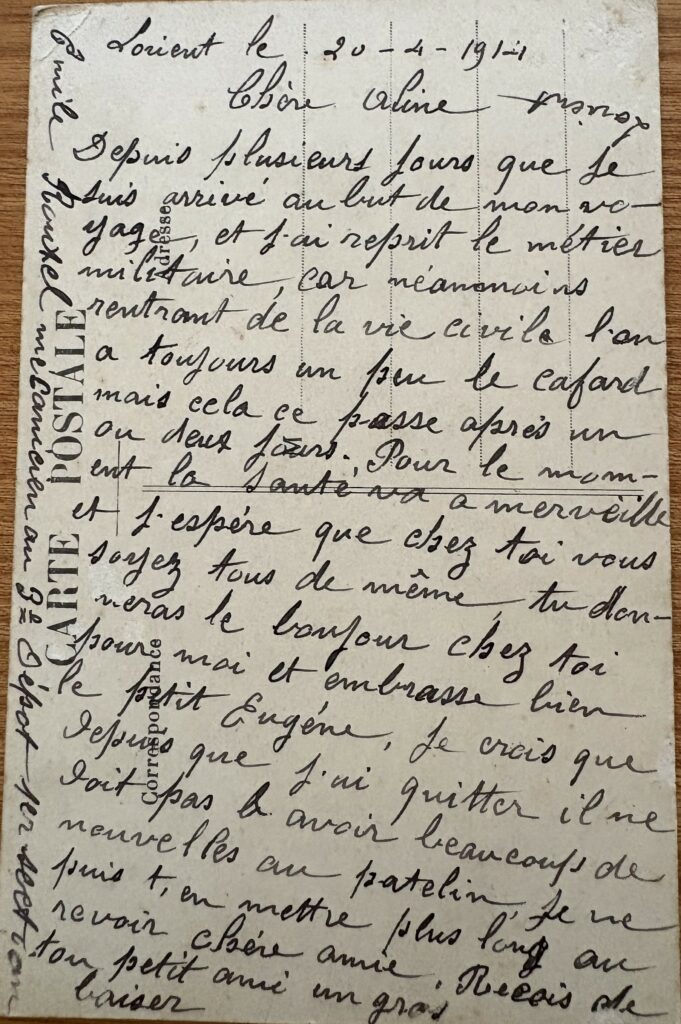 Lorient le 20-4-1911
Chère Aline
Lorient
Depuis plusieurs jours que je
suis arrivé au but de mon vo-
yage, et j'ai reprit le métier
militaire, car néanmoins
rentrant de la vie civile l'on
a toujours un peu le cafard
mais cela ce passe après un
ou deux jours. Pour le mom-
ent la santé va a merveille
et j'espère que chez toi vous
soyez tous de même, tu don-
neras le bonjour chez toi
pour moi et embrasse bien
le petit Eugéne, je crois que
depuis que j'ai quitter il ne
doit pas avoir beaucoups de
nouvelles au patelin, je ne
puis t'en mettre plus long au
revoir chére amie. Recois de
ton petit ami un gros
baiser
Emile Rouxel mecanicien au 3e Dépot 1er section
CARTE POSTALE
Correspondance
Adresse